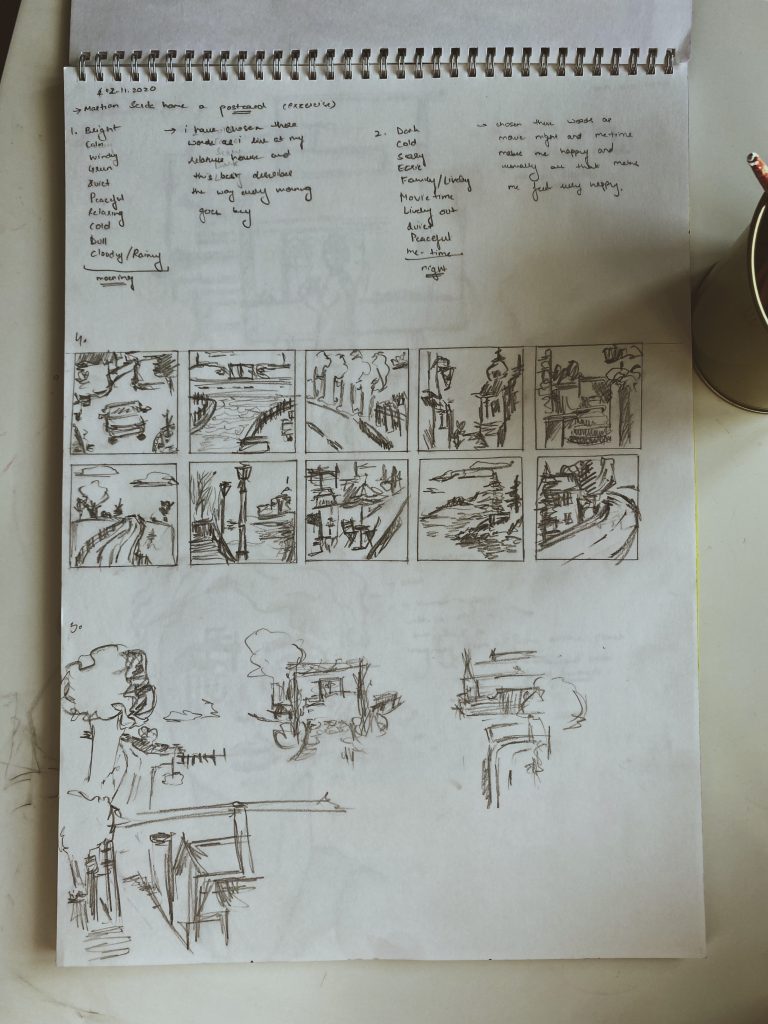 02.11.2020
→ Martian sends home a postcard (exercise)
1. Bright
Calm
Windy
Green
Quiet
Peaceful
Relaxing
Cold
Dull
Cloudy/Rainy
morning
→ i have chosen these
words as i live at my
house and
this best describes
the way every morning
goes by
2. Dark
Cold
Scary
Eerie
Family/Lively
Movie time
Lively out
Quiet
Peaceful
me-time
night
→ chosen these words as
movie night and me-time
makes me happy and
usually all that makes
me feel very happy.
4.
5.